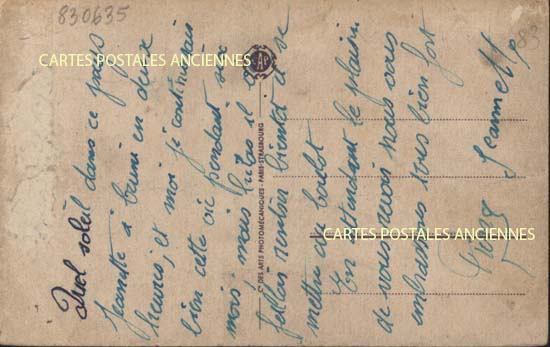 830635
CARTES POSTALES ANCIENNES
Quel soleil dans ce pays
Jeannette à bruni en deux
heures, et moi je continuerais
bien cette vie pendant six
mois, mais hélas il va
falloir rentrer bientôt et se
mettre au boulot
En attendant le plaisir
de vous revoir nous vous
embrassons tous bien fort
Jeannette
CARTES POSTALES ANCIENNES
Cie DES ARTS PHOTOMÉCANIQUES - PARIS-STRASBOURG